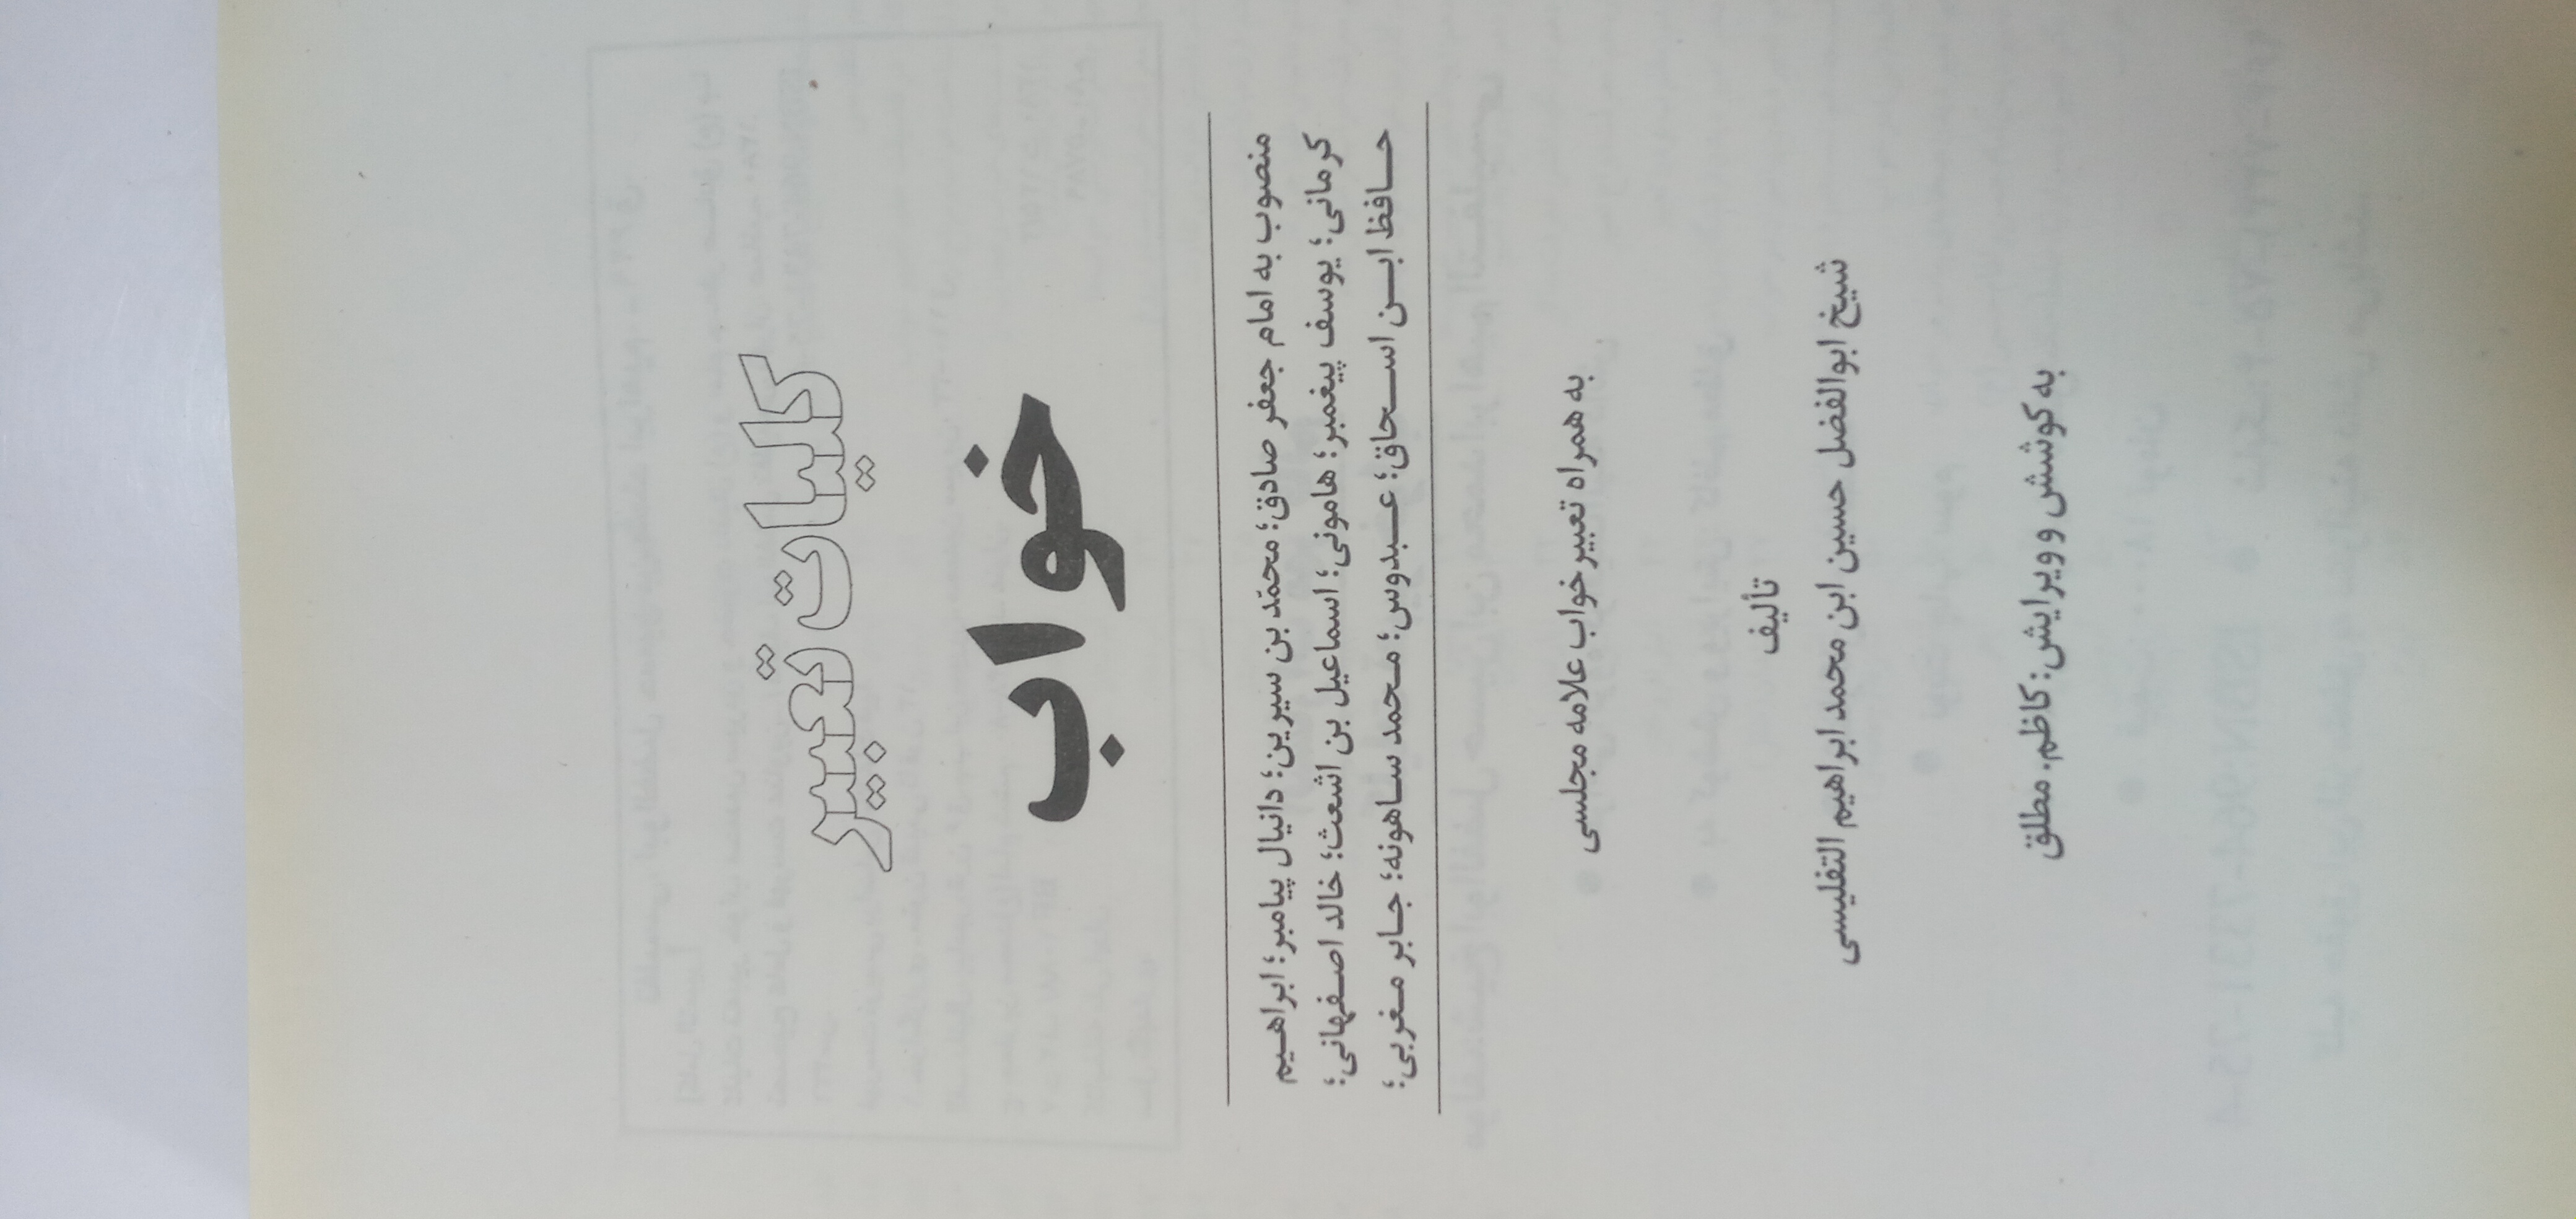 کلیات تعبیر
خواب
منصوب به امام جعفر صادق؛ محمّد بن سیرین؛ دانیال پیامبر؛ ابراهیم
کرمانی؛ یوسف پیغمبر؛ هامونی؛ اسماعیل بن اشعث؛ خالد اصفهانی؛
حافظ ابن اسحاق؛ عبدوس؛ محمد ساهونه؛ جابر مغربی؛
به همراه تعبیر خواب علامه مجلسی
تألیف
شیخ ابوالفضل حسین ابن محمد ابراهیم التفلیسی
به کوشش و ویرایش: کاظم. مطلق